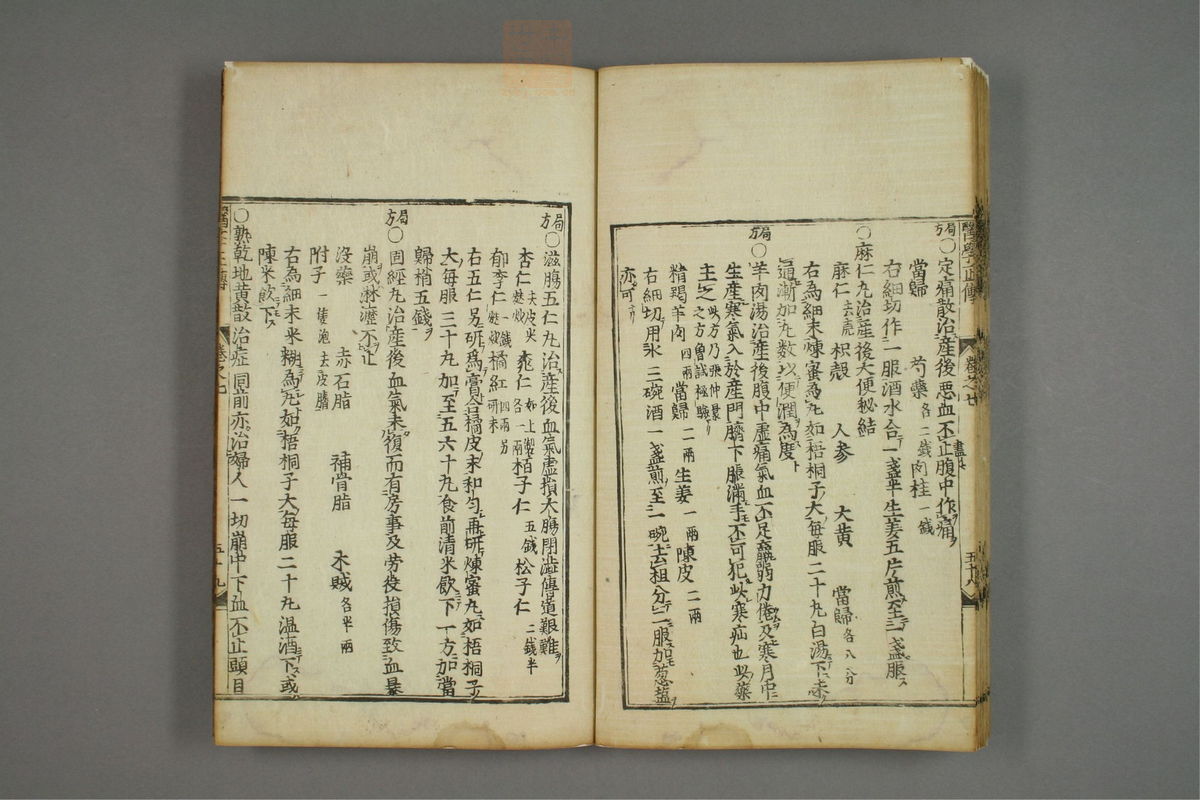 醫學正傳 卷之七 五十八
局方○定痛散治産後惡血不止腹中作痛
當歸 芍藥各二錢肉桂一錢
右細切作一服酒水合一盞半生姜五片煎至一盞服
○麻仁丸治産後大便秘結
麻仁去壳 枳殼 人參 大黄 當歸各八分
右為細末煉蜜為丸如梧桐子大每服二十丸白湯下未
通漸加丸數以便潤為度
局方○羊肉湯治産後腹中虚痛氣血不足羸弱力倦及寒月中
生産寒氣入於産門臍下脹滿手不可犯此寒疝也此藥
主之此方乃張仲景之方曽試極驗
精羯羊肉四兩當歸二兩生姜一兩陳皮二兩
右細切用水三碗酒一盞煎至一碗去柤分二服加葱盐
亦可
局方○滋腸五仁丸治産後血氣虚損大腸閉澁傳道艱難
杏仁去皮尖麩炒桃仁如上製各一兩栢子仁五錢松子仁二錢半
郁李仁一錢麩炒橘紅四兩另研末
右五仁另研為膏合橘皮末和匀再研煉蜜丸如梧桐子
大每服三十丸加至五六十丸食前清米飲下一方加當
歸稍五錢
局方○固經丸治産後血氣未復而有房事及劳役損傷致血暴
崩或淋瀝不止
没藥 赤石脂 補骨脂 木賊各半兩
附子一隻泡去皮臍
右為細末米糊為丸如梧桐子大每服二十丸温酒下或
陳米飲下
○熟乾地黄散治症同前亦治婦人一切崩中下血不止頭目
醫學正傳 卷之七 五十九